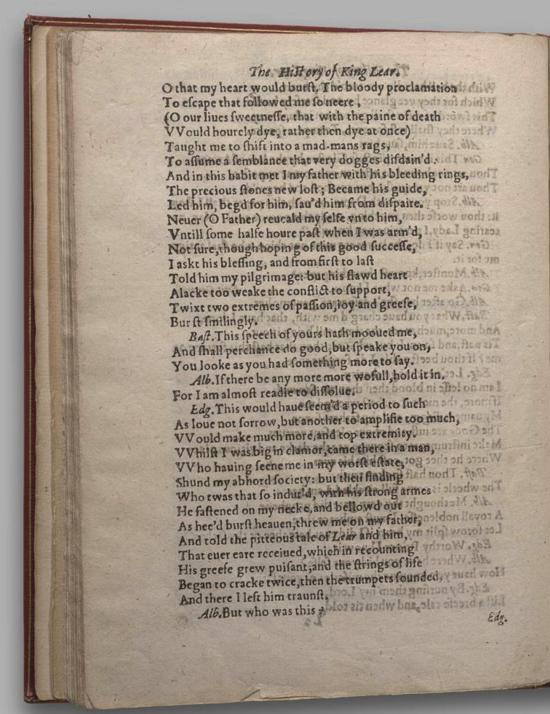 The History of King Lear.
O that my heart would burſt, The bloody proclamation
To eſcape that followed me ſo neere,
(O our liues ſweetneſſe, that with the paine of death
VVould hourely dye, rather then dye at once)
Taught me to ſhift into a mad-mans rags,
To aſſume a ſemblance that very dogges diſdain'd:
And in this habit met I my father with his bleeding rings,
The precious ſtones new loſt; Became his guide,
Led him, beg'd for him, ſau'd him from diſpaire.
Neuer (O Father) reueald my ſelfe vnto him,
Vntill ſome halfe houre paſt when I was arm'd,
Not ſure, though hoping of this good ſucceſſe,
I askt his bleſſing, and from firſt to laſt
Told him my pilgrimage: but his flawd heart
Alacke too weake the conflict to ſupport,
Twixt two extremes of paſſion, ioy and greefe,
Burſt ſmilingly.
Baſt. This ſpeech of yours hath mooued me,
And ſhall perchance do good, but ſpeake you on,
You looke as you had ſomething more to ſay.
Alb. If there be any more more wofull, hold it in,
For I am almoſt readie to diſſolue.
Edg. This would haue ſeem'd a period to ſuch
As loue not ſorrow, but another to amplifie too much,
VVould make much more, and top extremity.
VVhilſt I was big in clamor, came there in a man,
VVho hauing ſeene me in my worſt eſtate,
Shund my abhord ſociety: but then finding
Who twas that ſo indur'd, with his ſtrong armes
He faſtened on my necke, and bellowd out
As hee'd burſt heauen, threw me on my father,
And told the pitteous tale of Lear and him,
That euer eare receiued, which in recounting
His greefe grew puiſant, and the ſtrings of life
Began to cracke twice, then the trumpets ſounded,
And there I left him traunſt.
Alb. But who was this?
Edg.